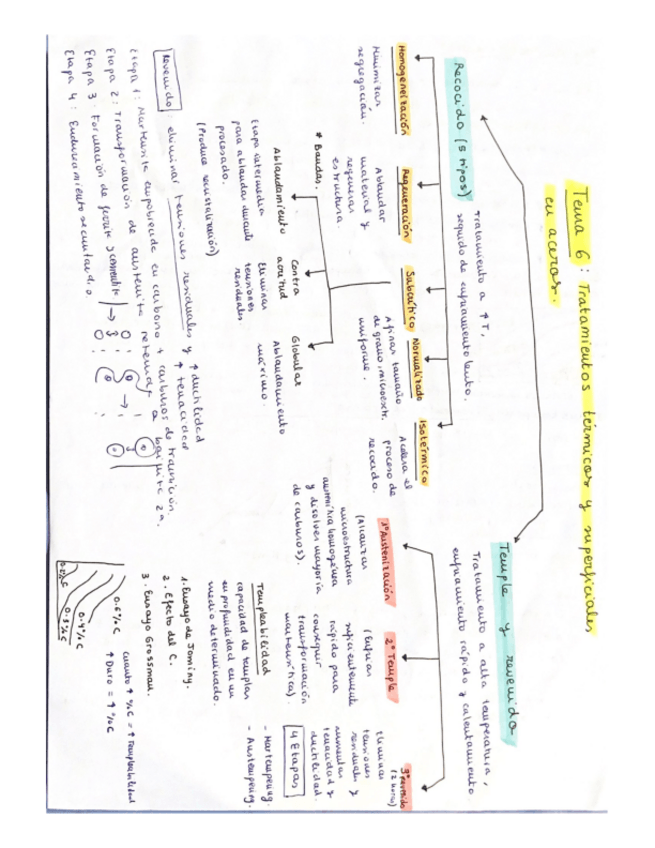 Tema 6: Tratamientos térmicos y superficiales
en aceros.
Recocido (5 tipos)
Tratamiento a ↑T,
seguido de enfriamiento lento.
Homogeneización
Minimizar
segregación.
Regeneración
Ablandar
material y
regenerar
estructura.
* Bandas.
Subcrítica
Ablandamiento
Etapa intermedia
para ablandar durante
procesado.
(Produce recristalización)
Contra
acritud
Eliminar
tensiones
residuales.
Globular
Ablandamiento
máximo.
Normalizado
Afinar tamaño
de grano, microestr.
uniforme.
Isotérmica
Acelera el
proceso de
recocido.
Temple y revenido
Tratamiento a alta temperatura,
enfriamiento rápido y calentamiento
1º Austenización
(Alcanzar
microestructura
austenítica homogénea
y disolver mayoría
de carburos).
2º Temple
(Enfriar
suficientemente
rápido para
conseguir
transformación
martensítica).
Templabilidad
capacidad de templar
en profundidad en un
medio determinado.
1. Ensayo de Jominy.
2. Efecto del C.
3. Ensayo Grossman.
3º revenido
(2 horas)
Eliminar
tensiones
residuales y
aumentar
tenacidad y
ductilidad.
4 Etapas
- Martempering.
- Austempering.
Revenido: eliminar tensiones residuales y ↑ ductilidad
↑ tenacidad
Etapa 1: Martensita empobrecida en carbono + carburos de transición.
Etapa 2: Transformación de austenita retenida a bainita 2a.
Etapa 3: Formación de ferrita y cementita
Etapa 4: Endurecimiento secundario.
0.6% C
0.4% C
0.3% C
cuanto ↑ %C = ↑ Templabilidad
↑ Duro = ↑ %C